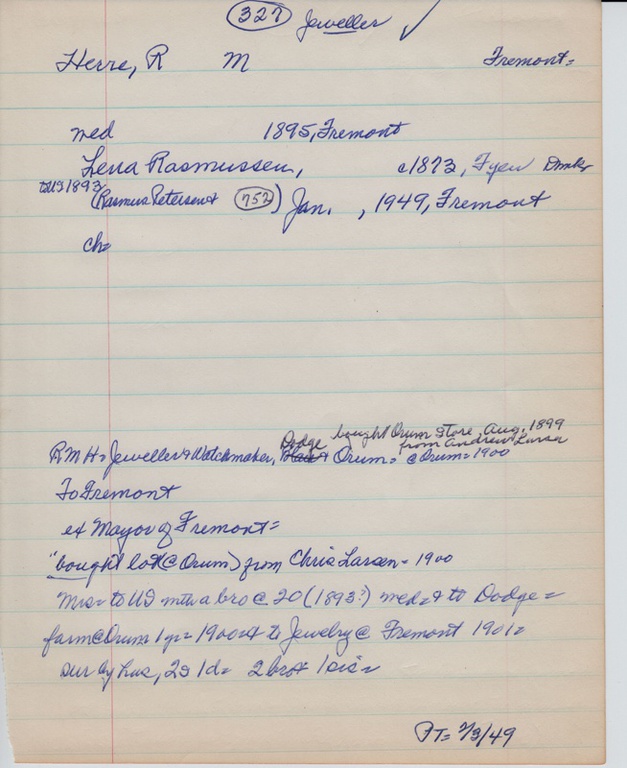 327 Jeweller ✓
Herre, R M Fremont=
med 1895, Fremont
Lena Rasmussen, c1873, Fyen Dmk
to US 1893
(Rasmus Petersen+ 752) Jan. , 1949, Fremont
ch=
bought Orum Store, Aug. 1899
from Andrew Larsen
R M H= Jeweller & Watchmaker, Dodge & Orum= @ Orum= 1900
To Fremont
ex Mayor of Fremont=
"bought lot (@ Orum) from Chris Larsen= 1900
Mrs= to US with a bro @ 20 (1893?) med= & to Dodge=
farm @ Orum 1 yr= 1900 & to Jewelry @ Fremont 1901=
sur by hus, 2s 1d= 2 bro & 1 sis=
FT= 2/3/49